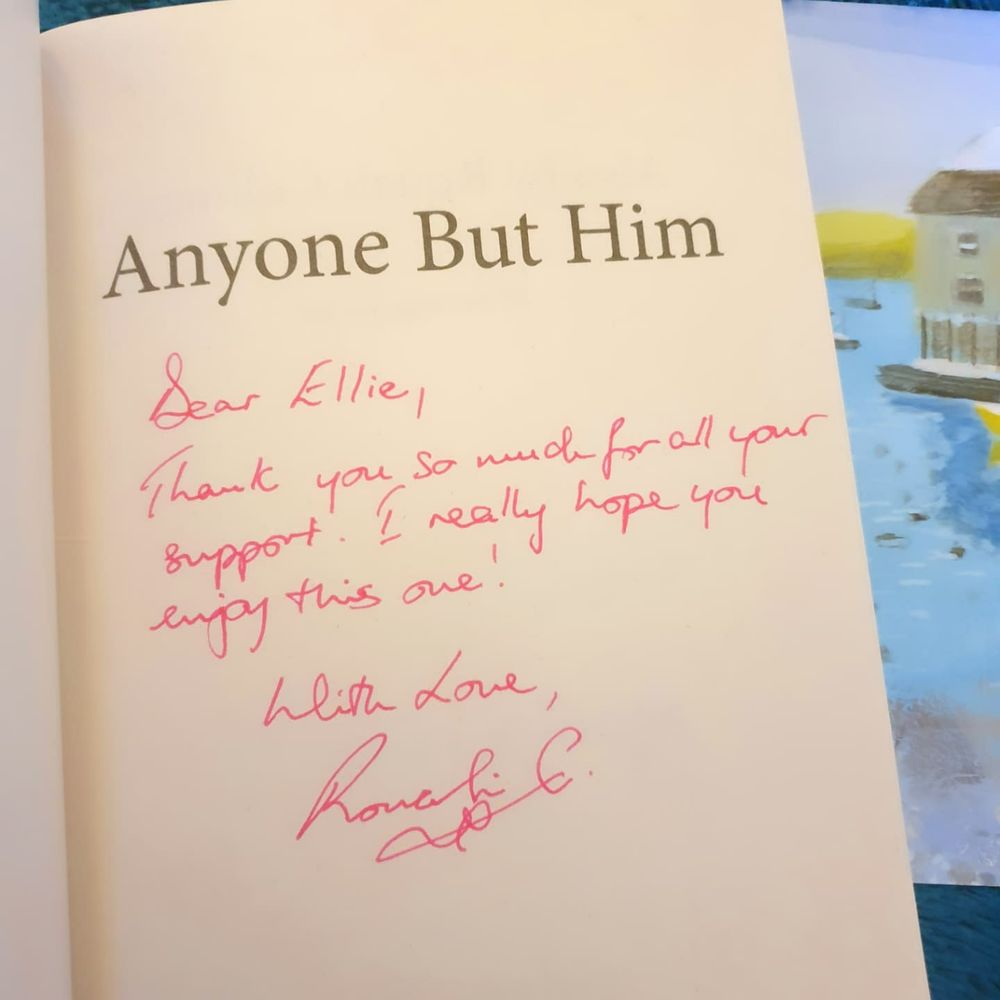 Anyone But Him
Dear Ellie,
Thank you so much for all your
support. I really hope you
enjoy this one!
With Love,
C.